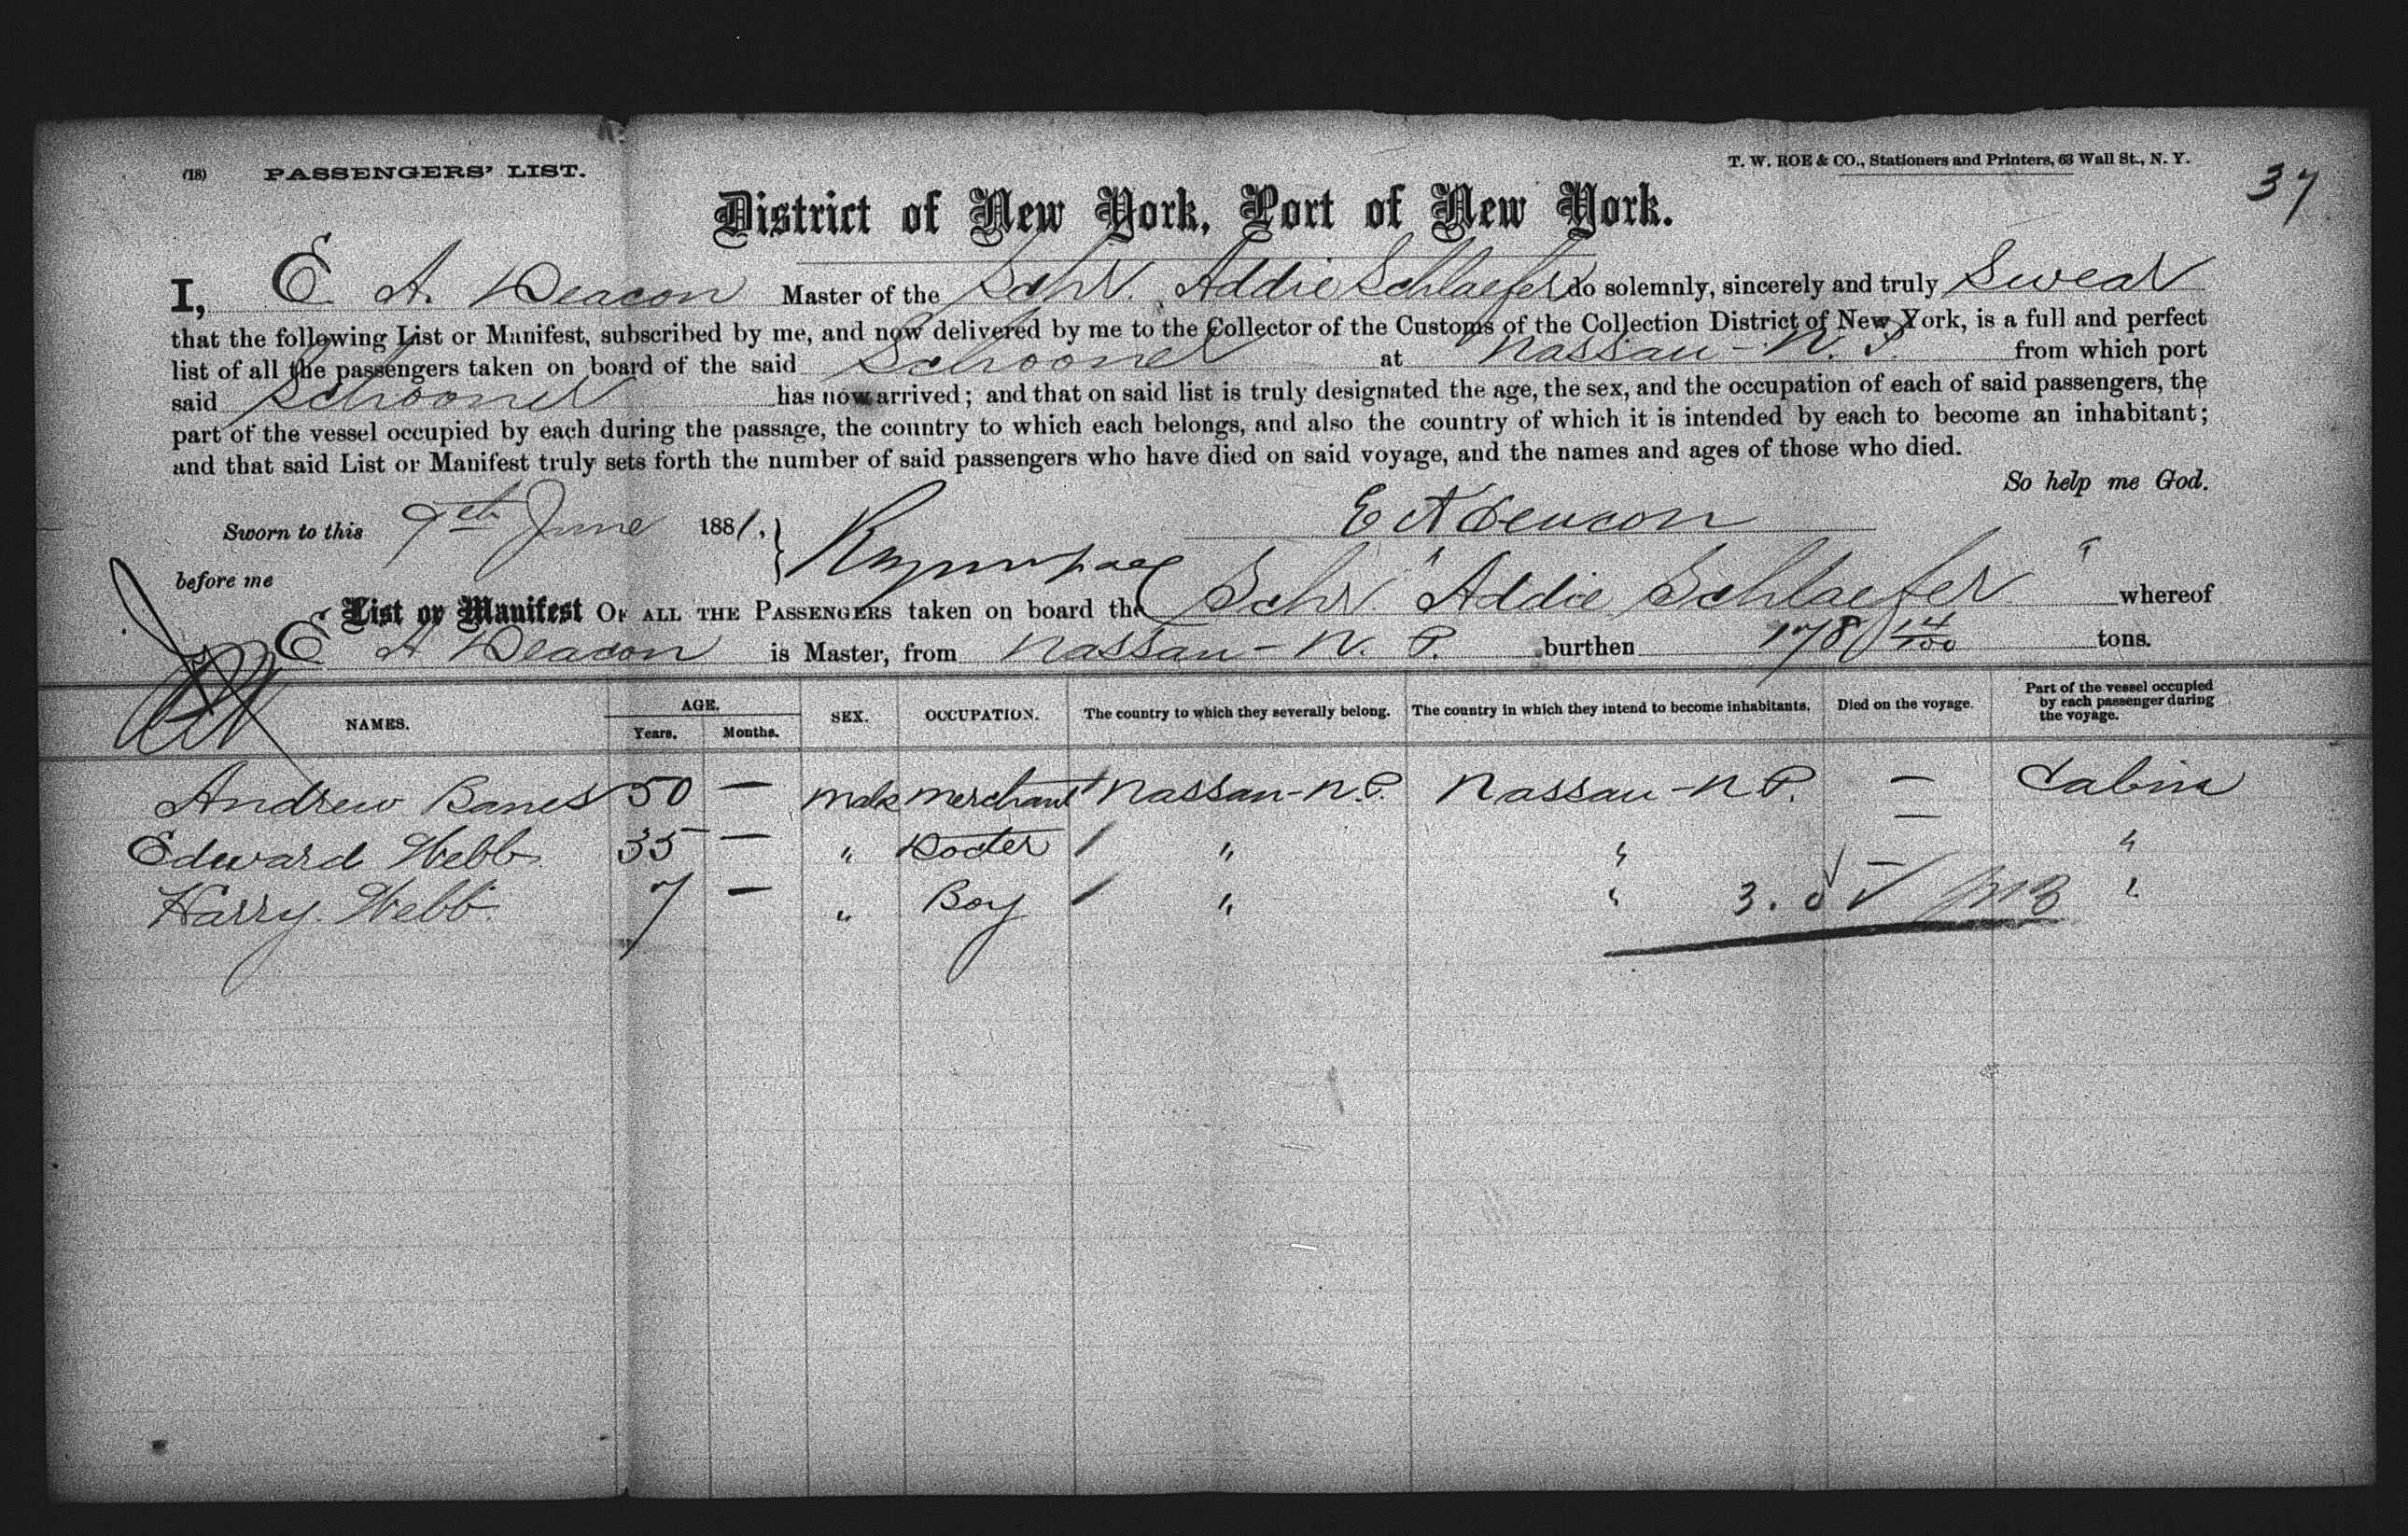 (18) PASSENGERS' LIST.
T. W. ROE & CO., Stationers and Printers, 63 Wall St., N. Y.
37
District of New York, Port of New York.
I, E. A. Deacon Master of the Schr. Addie Schlaefer do solemnly, sincerely and truly Swear
that the following List or Manifest, subscribed by me, and now delivered by me to the Collector of the Customs of the Collection District of New York, is a full and perfect
list of all the passengers taken on board of the said Schooner at Nassau - N. P. from which port
said Schooner has now arrived; and that on said list is truly designated the age, the sex, and the occupation of each of said passengers, the
part of the vessel occupied by each during the passage, the country to which each belongs, and also the country of which it is intended by each to become an inhabitant;
and that said List or Manifest truly sets forth the number of said passengers who have died on said voyage, and the names and ages of those who died.
So help me God.
Sworn to this 9th June 1881. E A Deacon
before me
List or Manifest OF ALL THE PASSENGERS taken on board the Schr "Addie Schlaefer" whereof
E A Deacon is Master, from Nassau - N. P. burthen 178 14/100 tons.
NAMES. AGE. Years. Months. SEX. OCCUPATION. The country to which they severally belong. The country in which they intend to become inhabitants. Died on the voyage. Part of the vessel occupied by each passenger during the voyage.
Andrew Banes 50 — Male Merchant Nassau - N. P. Nassau - N P. — Cabin
Edward Webb 35 — " Docter / " " — "
Harry Webb 7 — " Boy / " " — "
3.